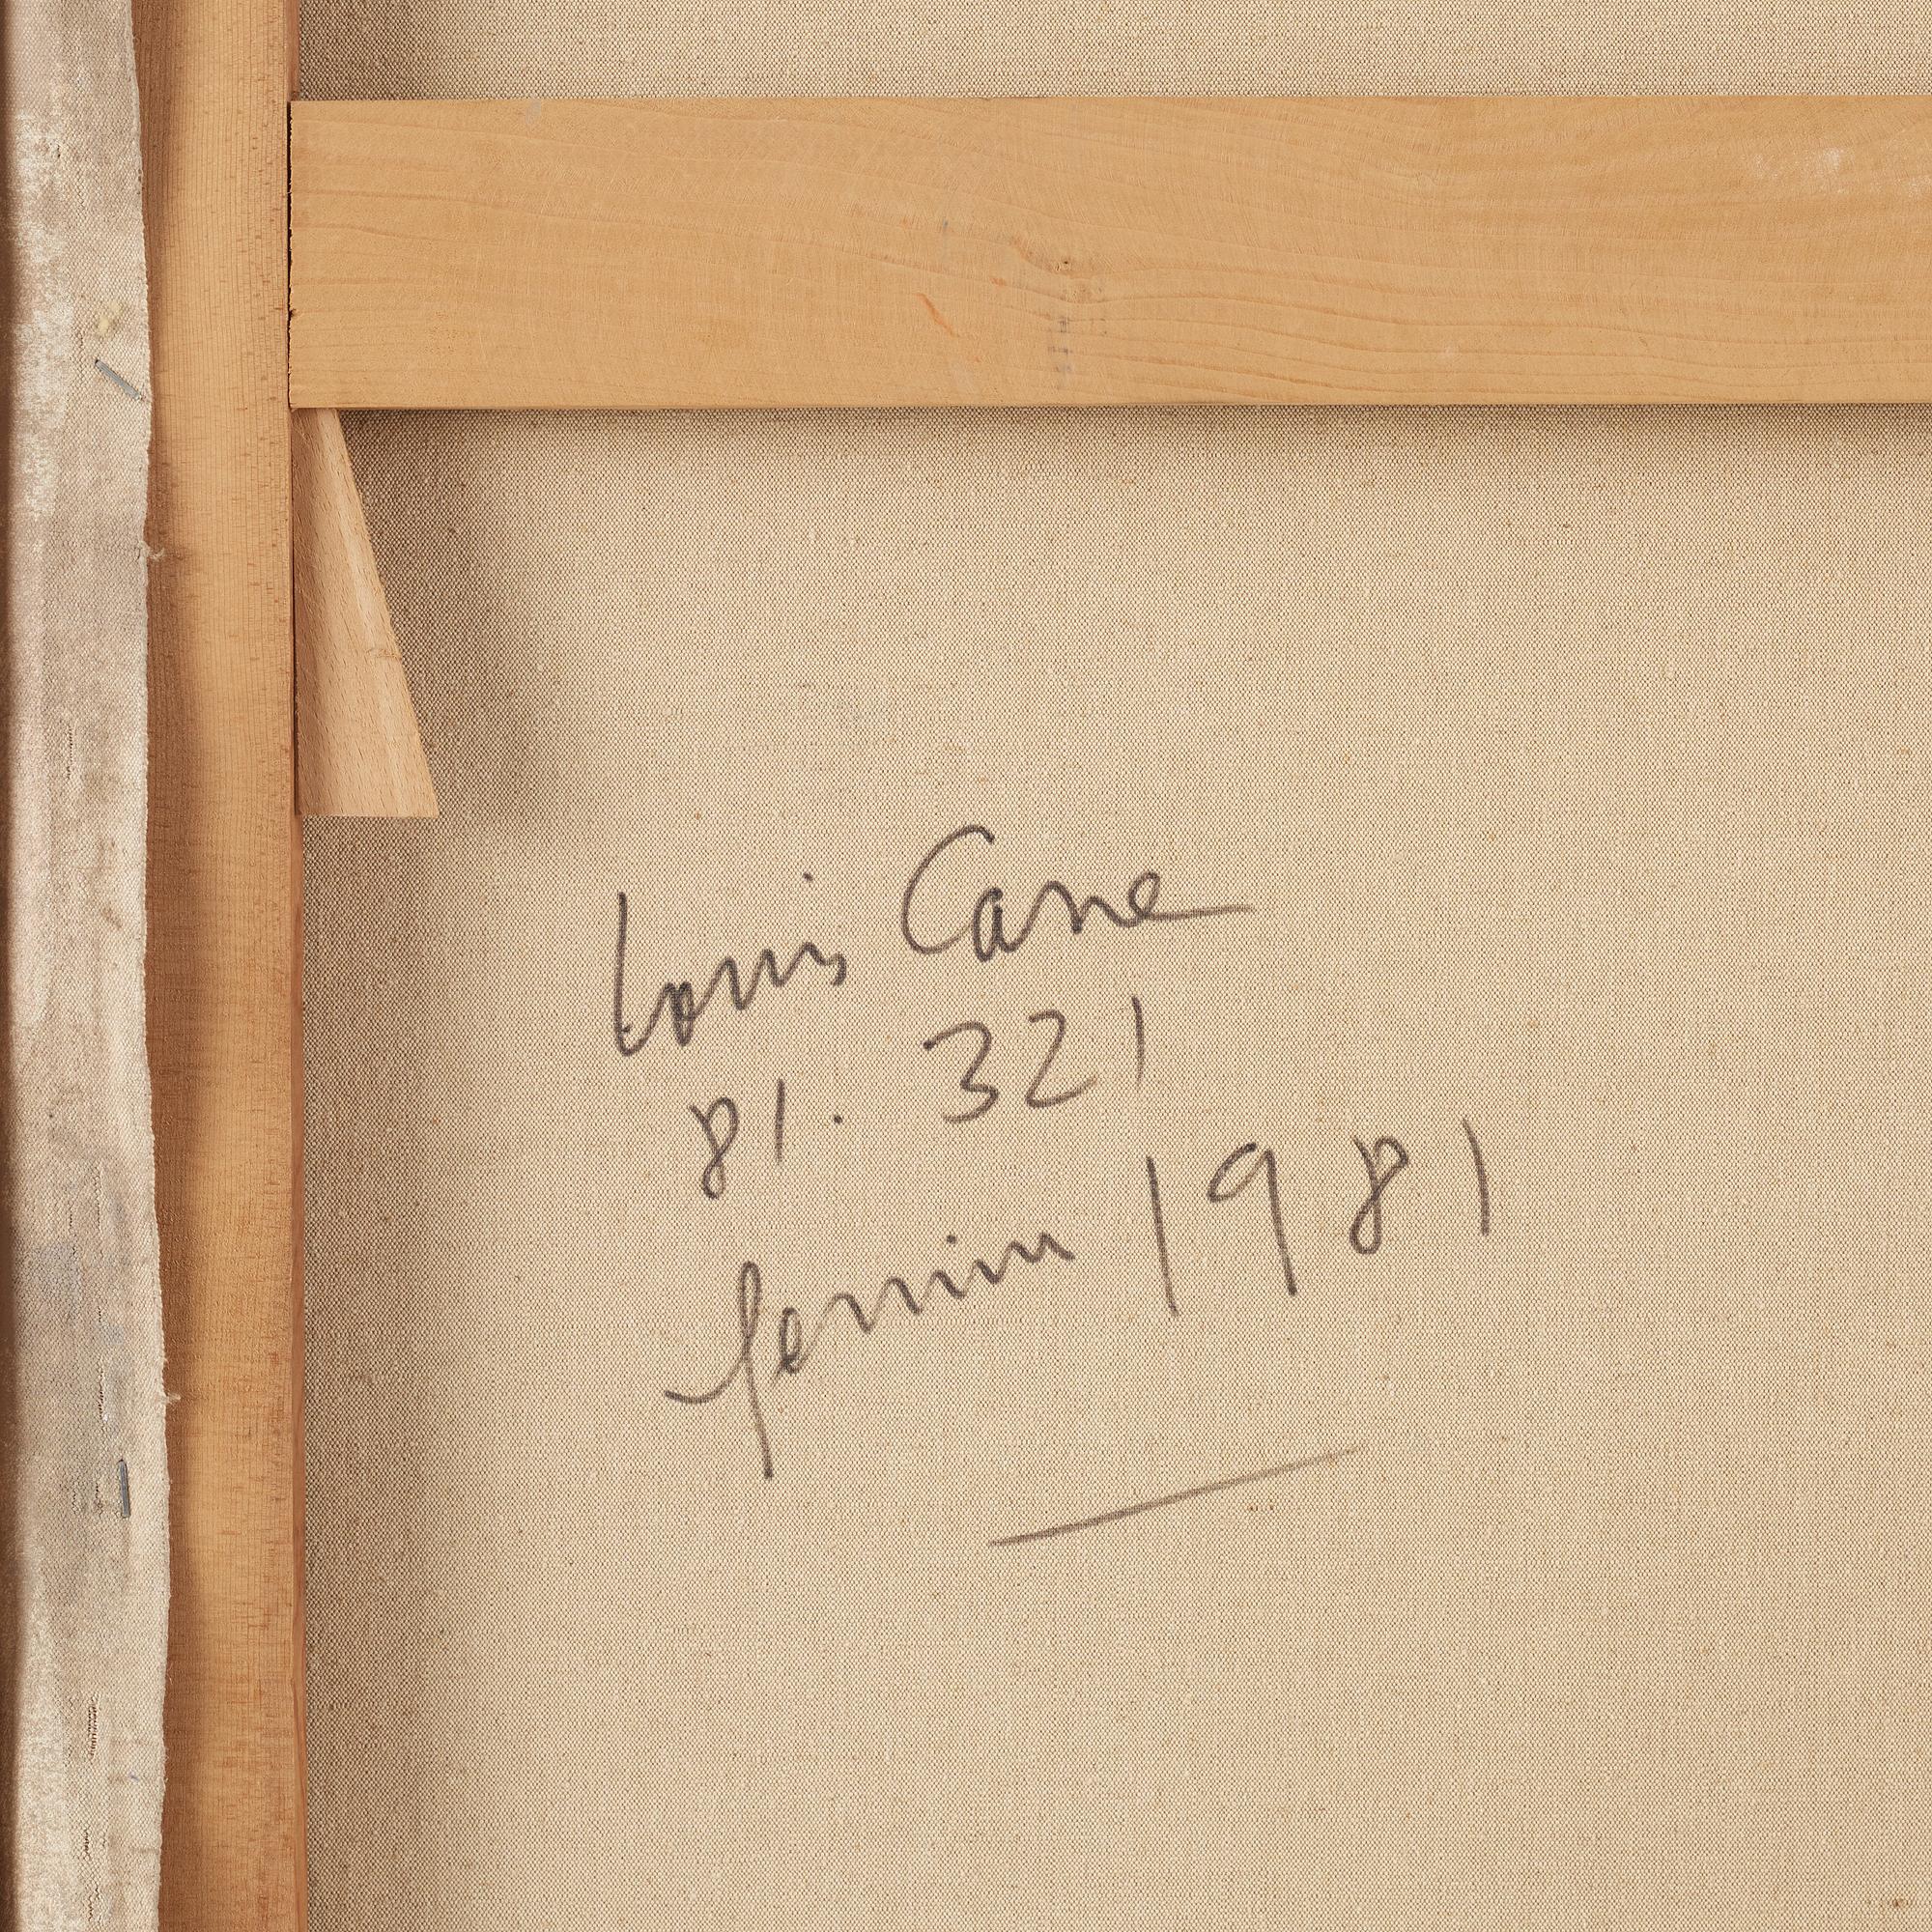 Louis Cane
81. 321
1981